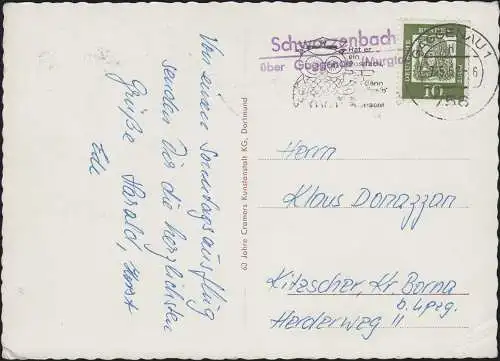 Schwarzenbach
über Gaggenau (Murgtal)
Hat er
ein
GAGGENAU 1
10
Von einem Sonntagsausflug
senden Dir die herzlichsten
Grüße Harald, Horst
Ede
60 Jahre Cramers Kunstanstalt KG, Dortmund
Herrn
Klaus Donazzan
Kitzscher, Kr. Borna
b. Lpzg.
Herderweg 11